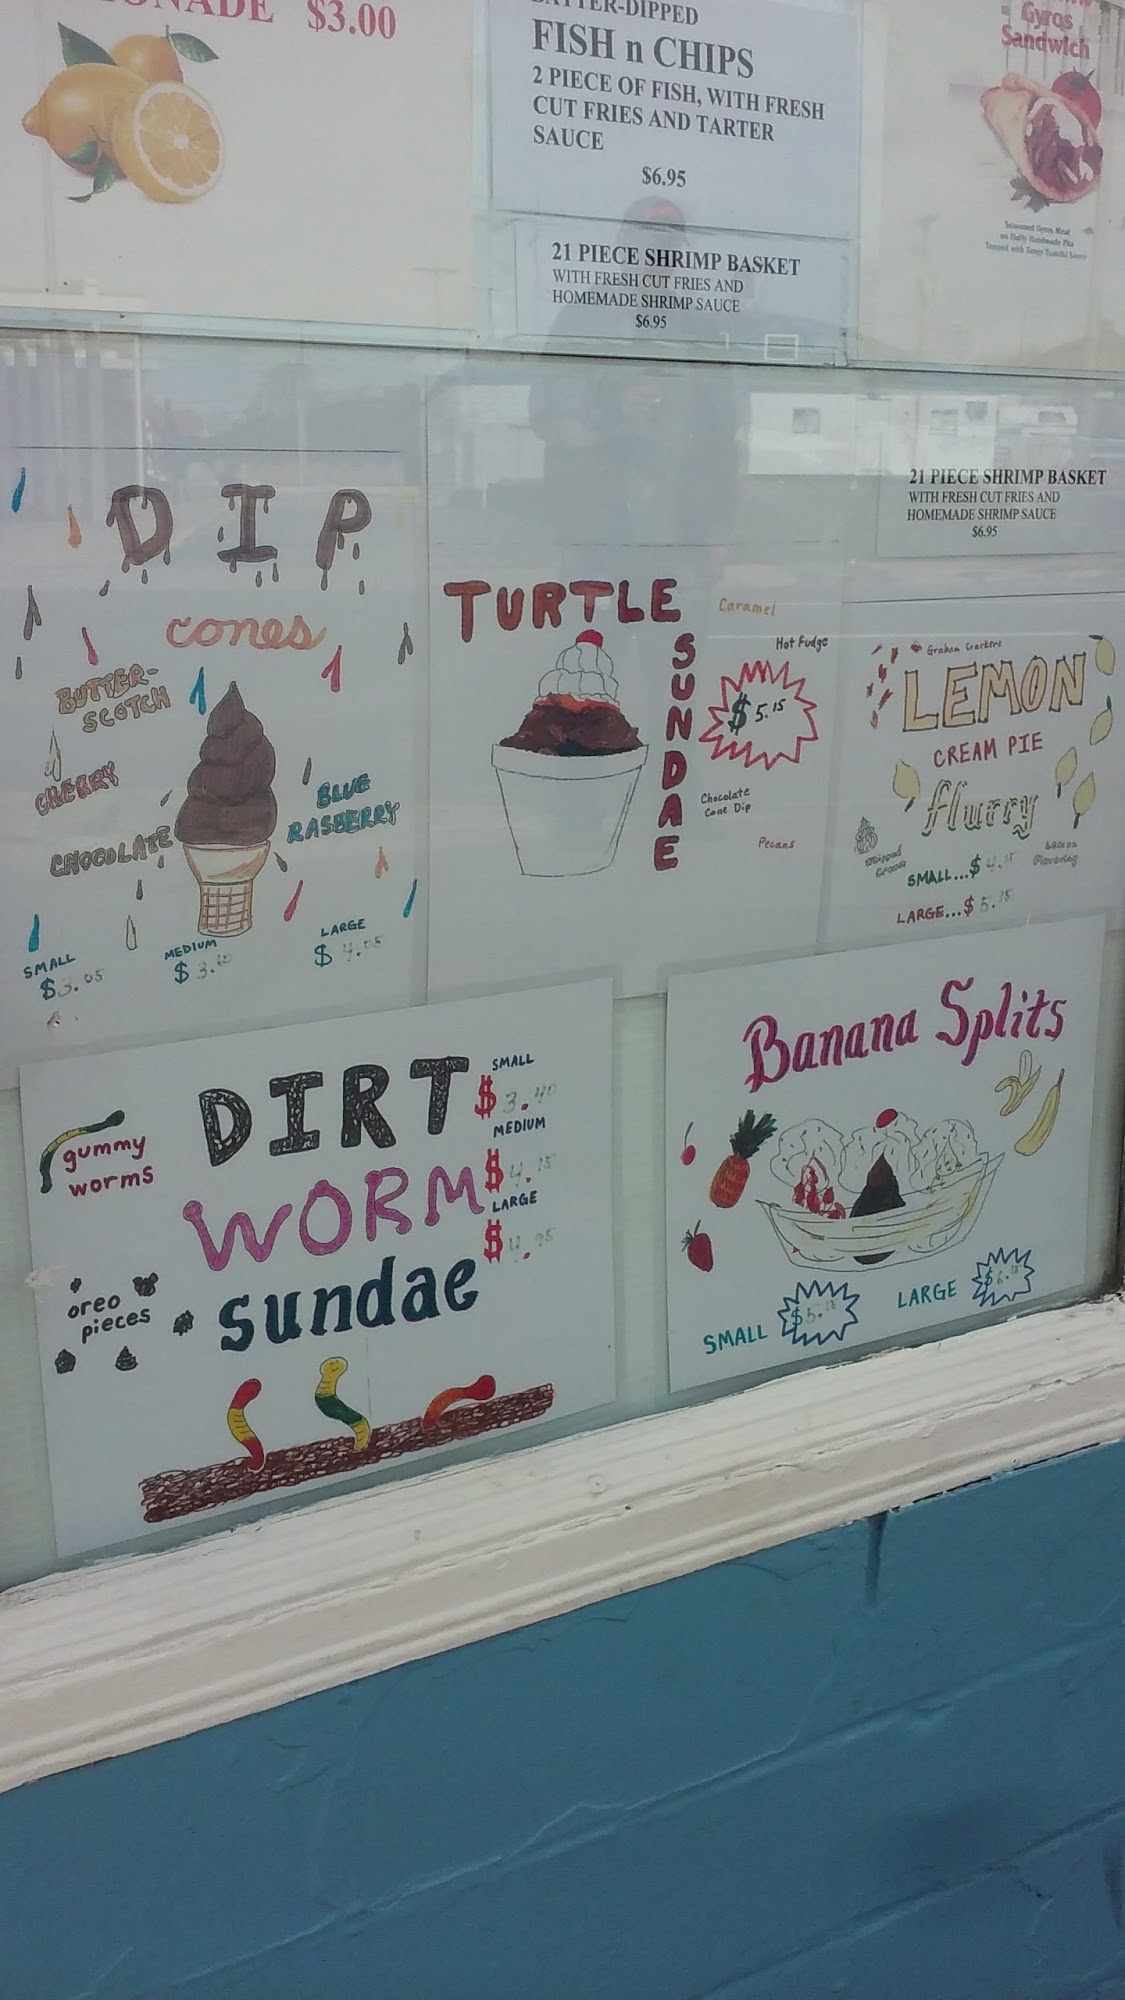 $3.00
FISH n CHIPS
2 PIECE OF FISH, WITH FRESH
CUT FRIES AND TARTER
SAUCE
$6.95
21 PIECE SHRIMP BASKET
WITH FRESH CUT FRIES AND
HOMEMADE SHRIMP SAUCE
$6.95
Gyros
Sandwich
Seasoned Gyros Meat
on Fluffy Handmade Pita
Topped with Tangy Tzatziki Sauce
21 PIECE SHRIMP BASKET
WITH FRESH CUT FRIES AND
HOMEMADE SHRIMP SAUCE
$6.95
DIP
cones
BUTTER-
SCOTCH
CHERRY
CHOCOLATE
BLUE
RASBERRY
SMALL
$3.05
MEDIUM
$3.60
LARGE
$4.05
TURTLE
SUNDAE
Caramel
Hot Fudge
$5.15
Chocolate
Cone Dip
Pecans
Graham Crackers
LEMON
CREAM PIE
flurry
Whipped
Cream
Lemon
Flavoring
SMALL...$4.15
LARGE...$5.15
DIRT
WORM
sundae
gummy
worms
oreo
pieces
SMALL
$3.40
MEDIUM
$4.15
LARGE
$4.95
Banana Splits
SMALL $5.15
LARGE $6.15